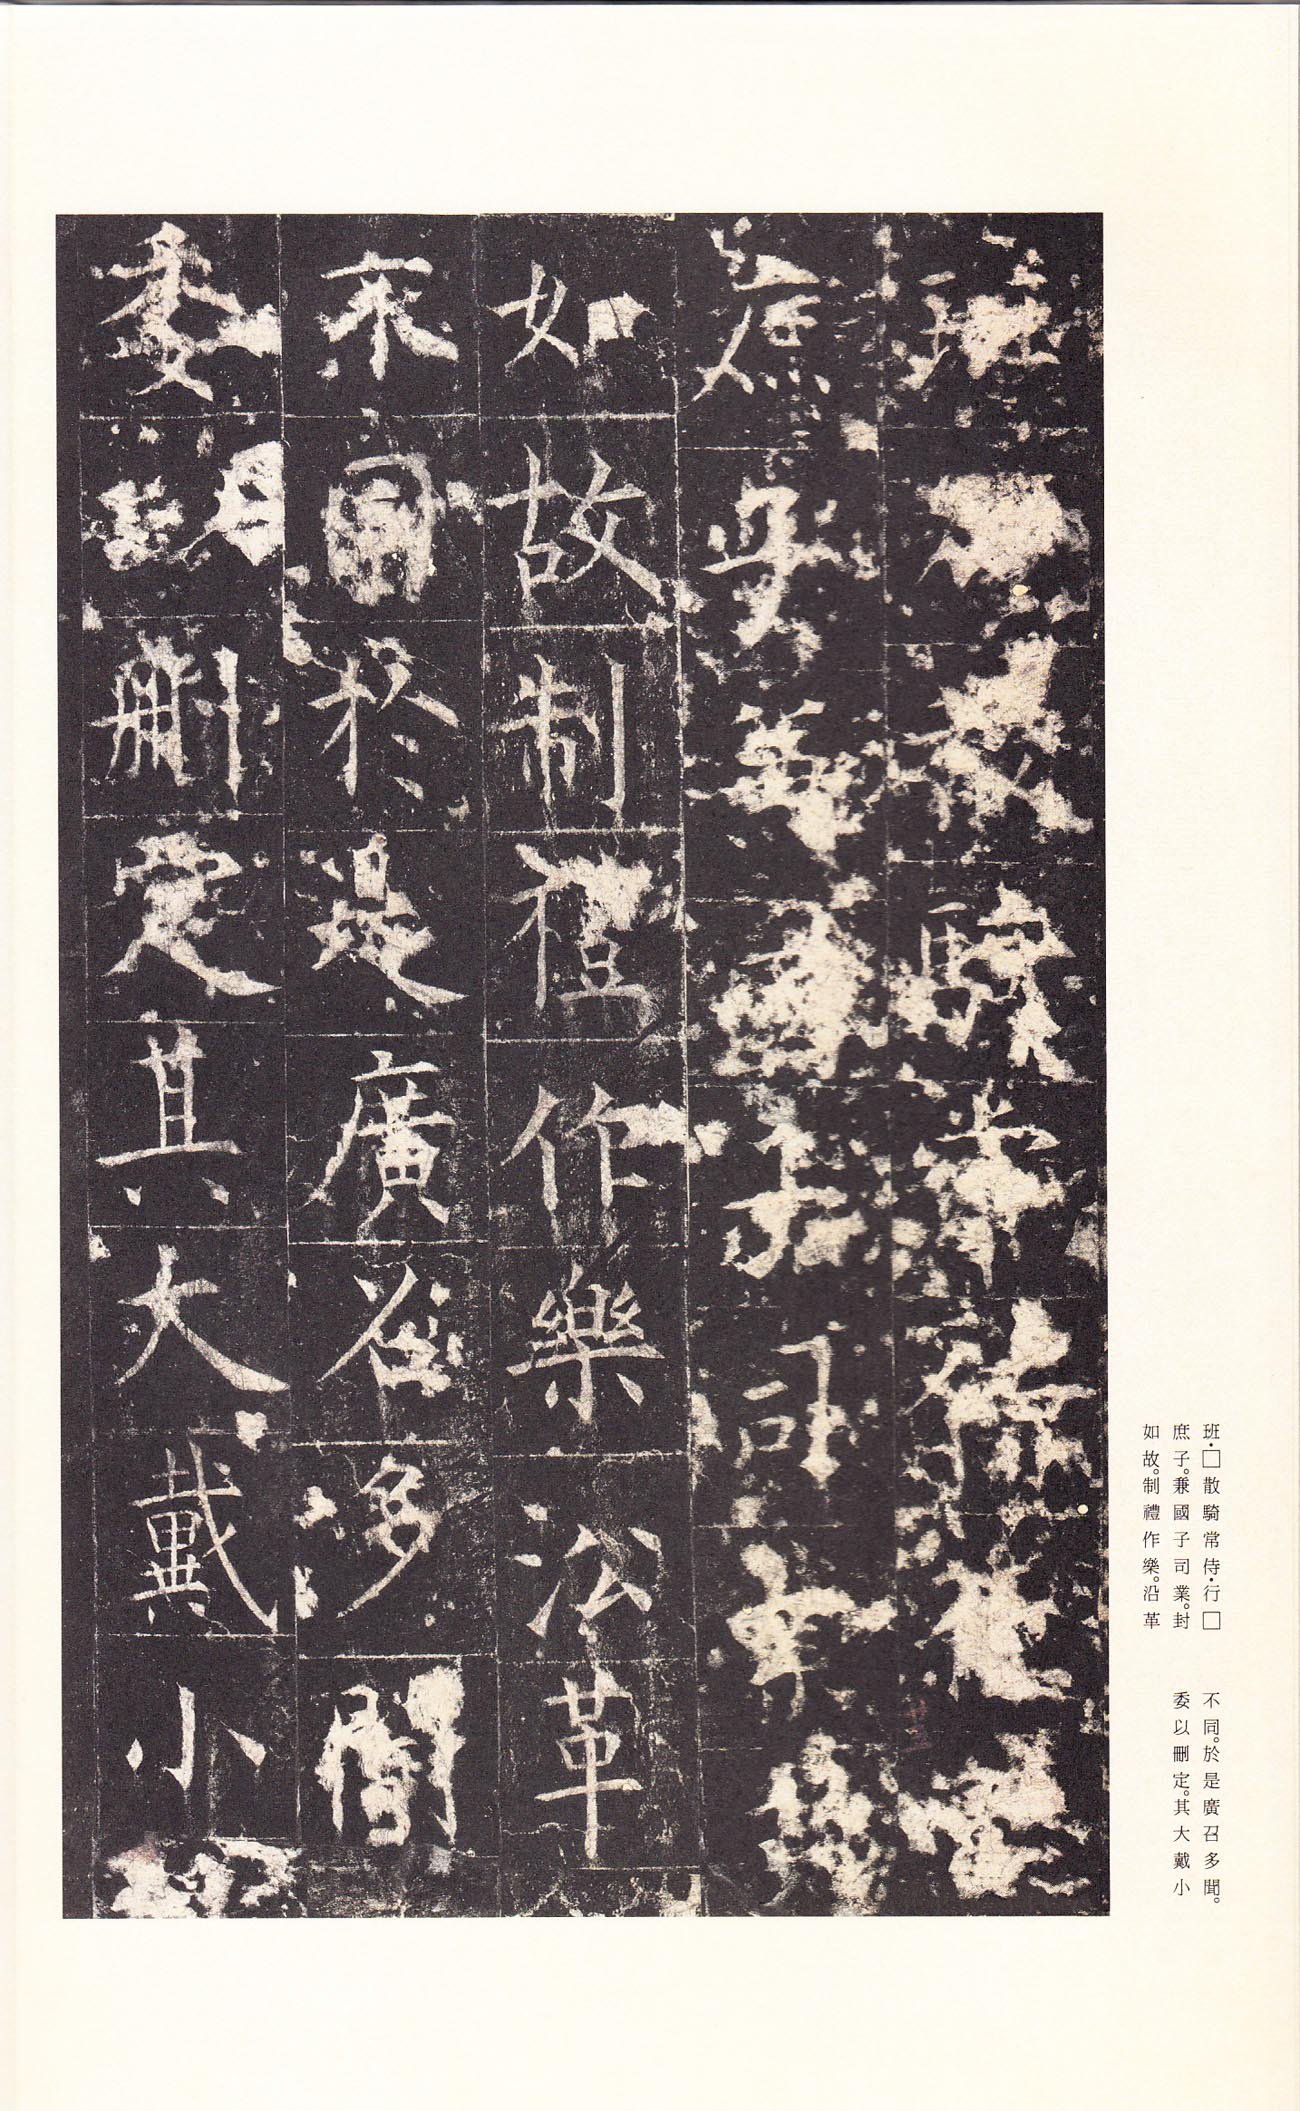 班·□散騎常侍·行□
庶子。兼國子司業。封
如故。制禮作樂。沿革
不同。於是廣召多聞。
委以刪定。其大戴小
班散騎常侍行
庶子兼國子司業封
如故制禮作樂沿革
不同於是廣召多聞
委以刪定其大戴小